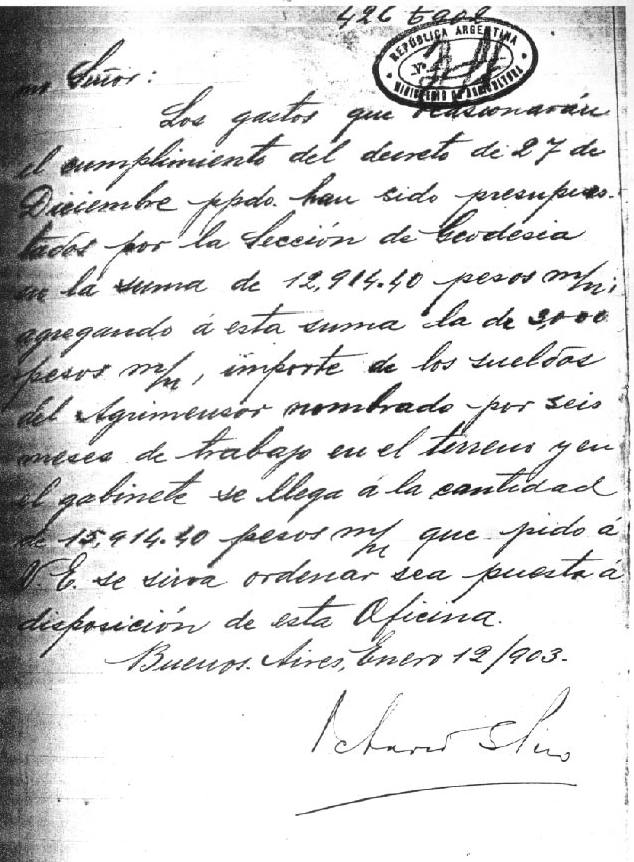 REPÚBLICA ARGENTINA
MINISTERIO DE AGRICULTURA
mo Señor:
Los gastos que ocasionarán
el cumplimiento del decreto de 27 de
Diciembre ppdo. han sido presupues-
tados por la Sección de Geodesia
en la suma de 12,914.40 pesos m/n;
agregando á esta suma la de 3,000
pesos m/n, importe de los sueldos
del Agrimensor nombrado por seis
meses de trabajo en el terreno y en
el gabinete se llega á la cantidad
de 15,914.40 pesos m/n que pido á
V. E. se sirva ordenar sea puesta á
disposición de esta Oficina.
Buenos Aires, Enero 12/903.